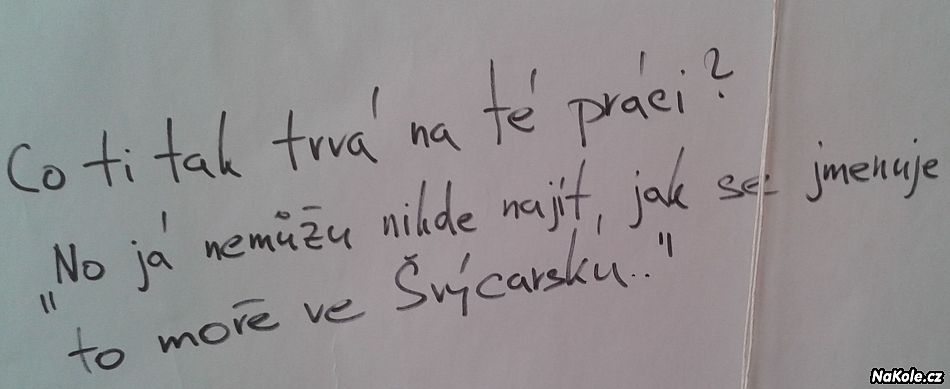 Co ti tak trvá na té práci?
"No já nemůžu nikde najít, jak se jmenuje
to moře ve Švýcarsku.."
NaKole.cz